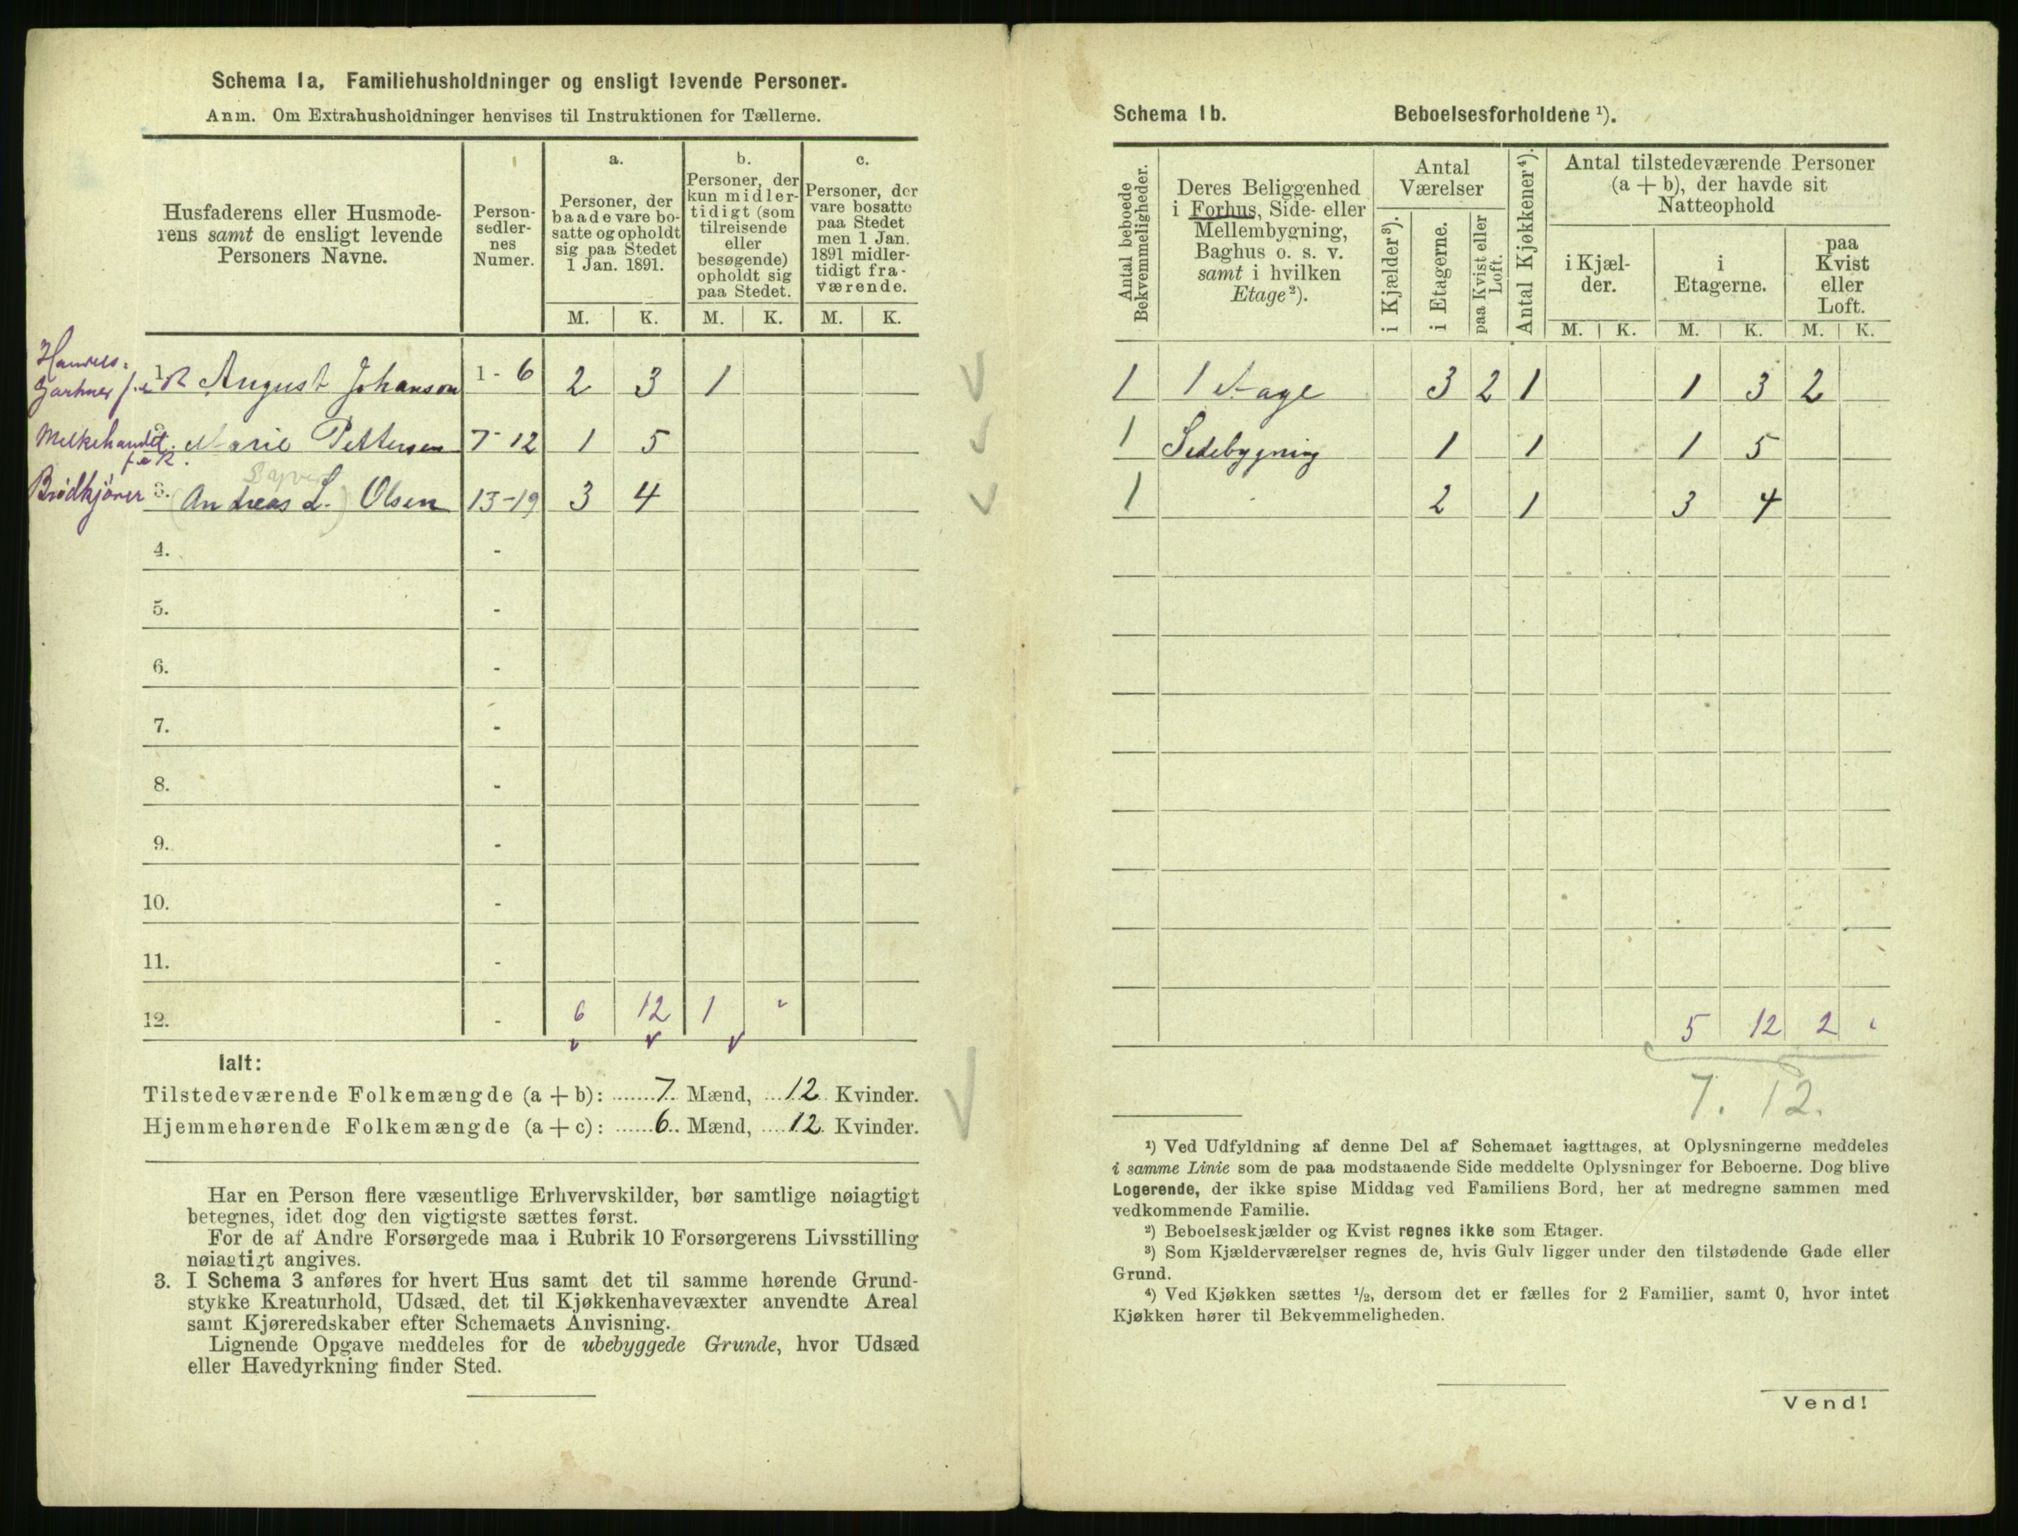 Schema 1a, Familiehusholdninger og ensligt levende Personer.
Anm. Om Extrahusholdninger henvises til Instruktionen for Tællerne.
Husfaderens eller Husmode-
rens samt de ensligt levende
Personers Navne.
Person-
sedler-
nes
Numer.
a.
Personer, der
baade vare bo-
satte og opholdt
sig paa Stedet
1 Jan. 1891.
b.
Personer, der
kun midler-
tidigt (som
tilreisende
eller
besøgende)
opholdt sig
paa Stedet.
c.
Personer, der
vare bosatte
paa Stedet
men 1 Jan.
1891 midler-
tidigt fra-
værende.
M. K. M. K. M. K.
Handels-
Gartner f.e.R
1. August Johanson 1 - 6 2 3 1
Melkehandel
f.e.R.
2. Marie Pettersen 7 - 12 1 5
Brødkjører 3. (Andreas L.) Olsen 13 - 19 3 4
4. -
5. -
6. -
7. -
8. -
9. -
10. -
11. -
12. - 6 12 1 "
Ialt:
Tilstedeværende Folkemængde (a + b): 7 Mænd, 12 Kvinder.
Hjemmehørende Folkemængde (a + c): 6 Mænd, 12 Kvinder.
Har en Person flere væsentlige Erhvervskilder, bør samtlige nøiagtigt
betegnes, idet dog den vigtigste sættes først.
For de af Andre Forsørgede maa i Rubrik 10 Forsørgerens Livsstilling
nøiagtigt angives.
3. I Schema 3 anføres for hvert Hus samt det til samme hørende Grund-
stykke Kreaturhold, Udsæd, det til Kjøkkenhavevæxter anvendte Areal
samt Kjøreredskaber efter Schemaets Anvisning.
Lignende Opgave meddeles for de ubebyggede Grunde, hvor Udsæd
eller Havedyrkning finder Sted.
Schema 1b. Beboelsesforholdene ¹).
Antal beboede
Bekvemmeligheder.
Deres Beliggenhed
i Forhus, Side- eller
Mellembygning,
Baghus o. s. v.
samt i hvilken
Etage ²).
Antal
Værelser
i Kjælder ³).
i Etagerne.
paa Kvist eller
Loft.
Antal Kjøkkener ⁴).
Antal tilstedeværende Personer
(a + b), der havde sit
Natteophold
i Kjæl-
der.
i
Etagerne.
paa
Kvist
eller
Loft.
M. K. M. K. M. K.
1 1 Etage 3 2 1 1 3 2
1 Sidebygning 1 1 1 5
1 " 2 1 3 4
5 12 2 "
7. 12.
¹) Ved Udfyldning af denne Del af Schemaet iagttages, at Oplysningerne meddeles
i samme Linie som de paa modstaaende Side meddelte Oplysninger for Beboerne. Dog blive
Logerende, der ikke spise Middag ved Familiens Bord, her at medregne sammen med
vedkommende Familie.
²) Beboelseskjælder og Kvist regnes ikke som Etager.
³) Som Kjælderværelser regnes de, hvis Gulv ligger under den tilstødende Gade eller
Grund.
⁴) Ved Kjøkken sættes ½, dersom det er fælles for 2 Familier, samt 0, hvor intet
Kjøkken hører til Bekvemmeligheden.
Vend!